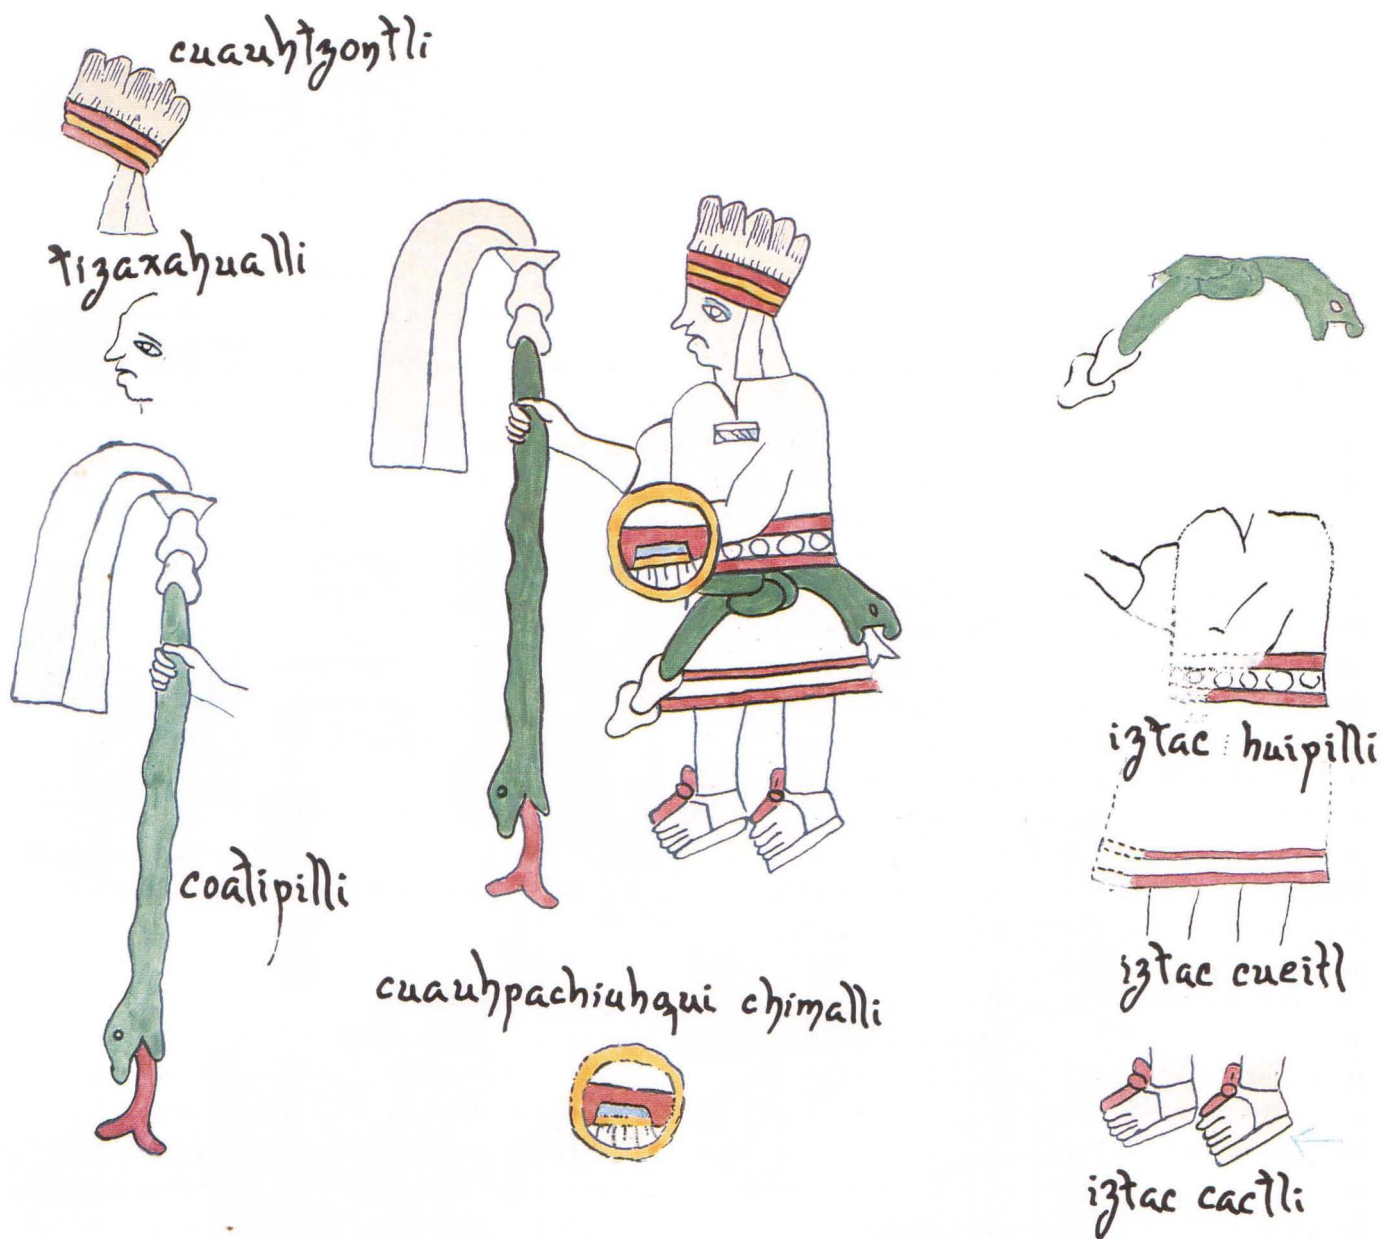 cuauhtzontli
tizaxahualli
coatipilli
cuauhpachiuhqui chimalli
iztac huipilli
iztac cueitl
iztac cactli